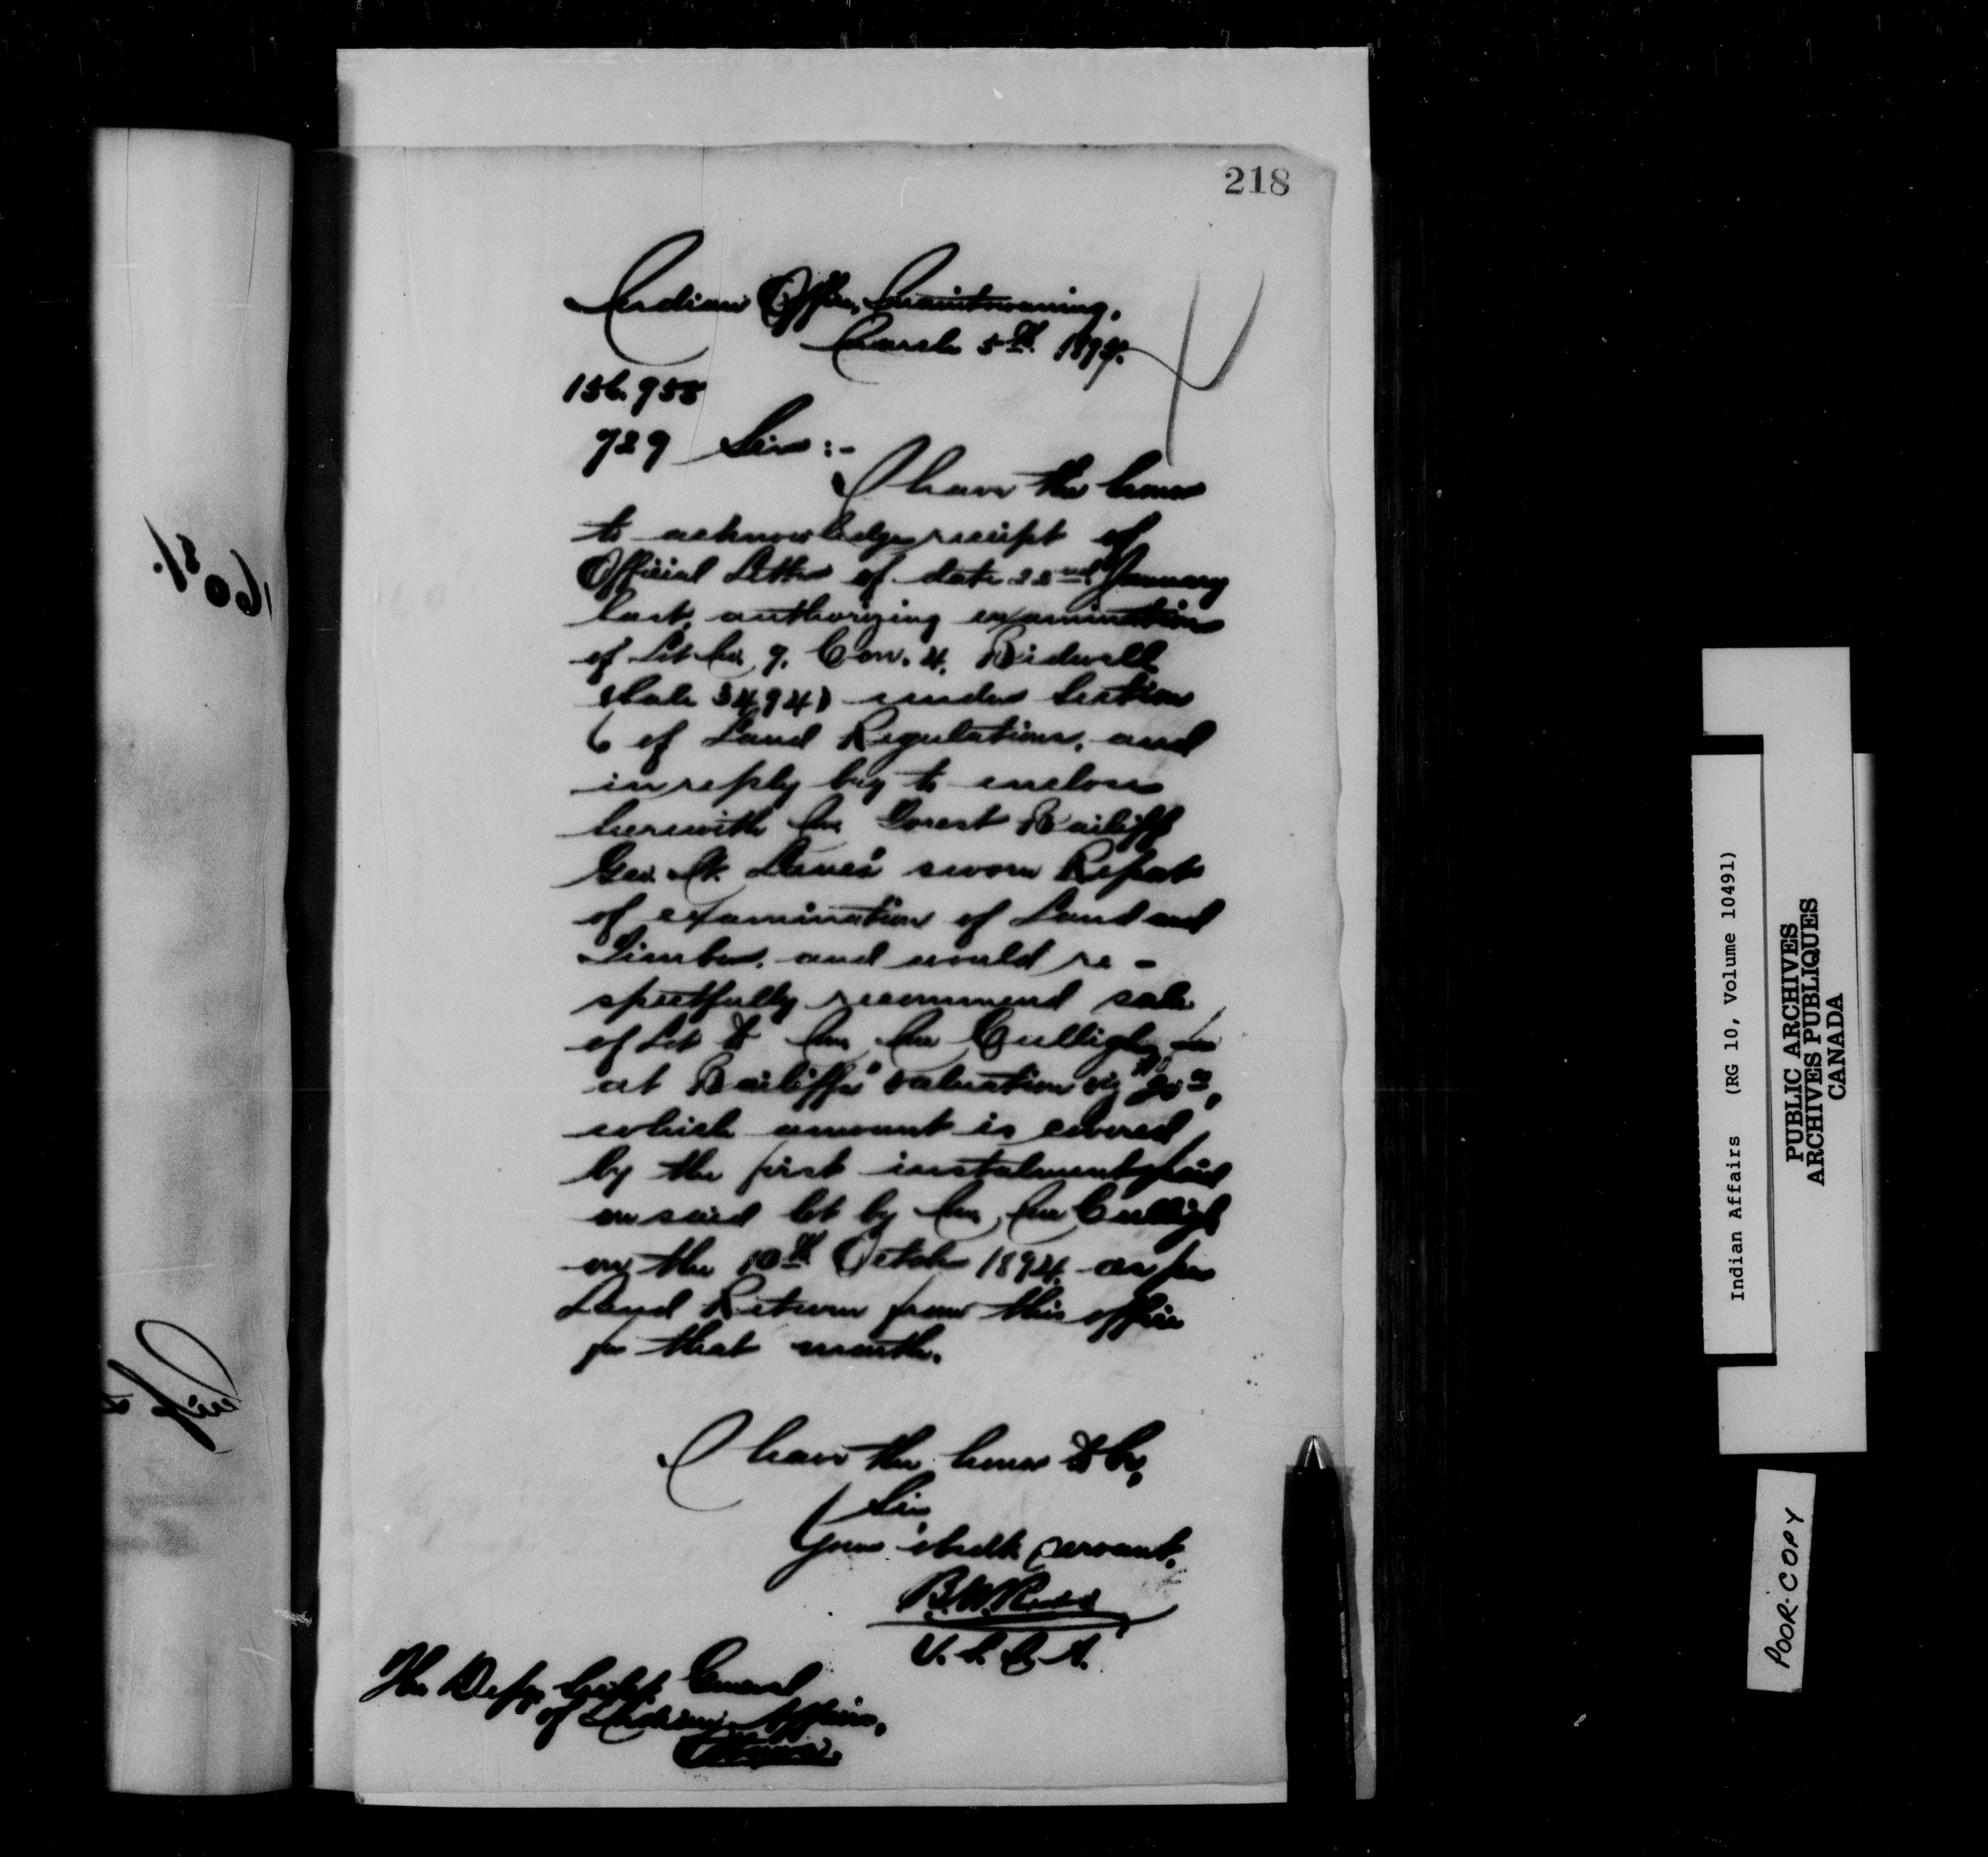 218
Indian Office, Manitowaning,
March 5th 1897.
156.955
729 Sir:-
I have the honor
to acknowledge receipt of
Official Letter of date 22nd January
last, authorizing examination
of Lot No. 9. Con. 4. Bidwell
(Sale 3494) under Section
6 of Land Regulations, and
in reply beg to enclose
herewith Mr Forest Bailiff
Geo. sworn Report
of examination of Land and
Timber, and would re-
spectfully recommend sale
of Lot to Mr Mc
at Bailiffs' valuation viz
which amount is covered
by the first instalment paid
on said lot by Mr Mc
on the 10th October 1894 as per
Land Return from this office
for that month.
I have the honor to be,
Sir,
Your obedt servant,
B.W. Ross
V.S.I.A.
The Depy Supt. General
of Indian Affairs,
Ottawa.
Indian Affairs (RG 10, Volume 10491)
PUBLIC ARCHIVES
ARCHIVES PUBLIQUES
CANADA
POOR-COPY